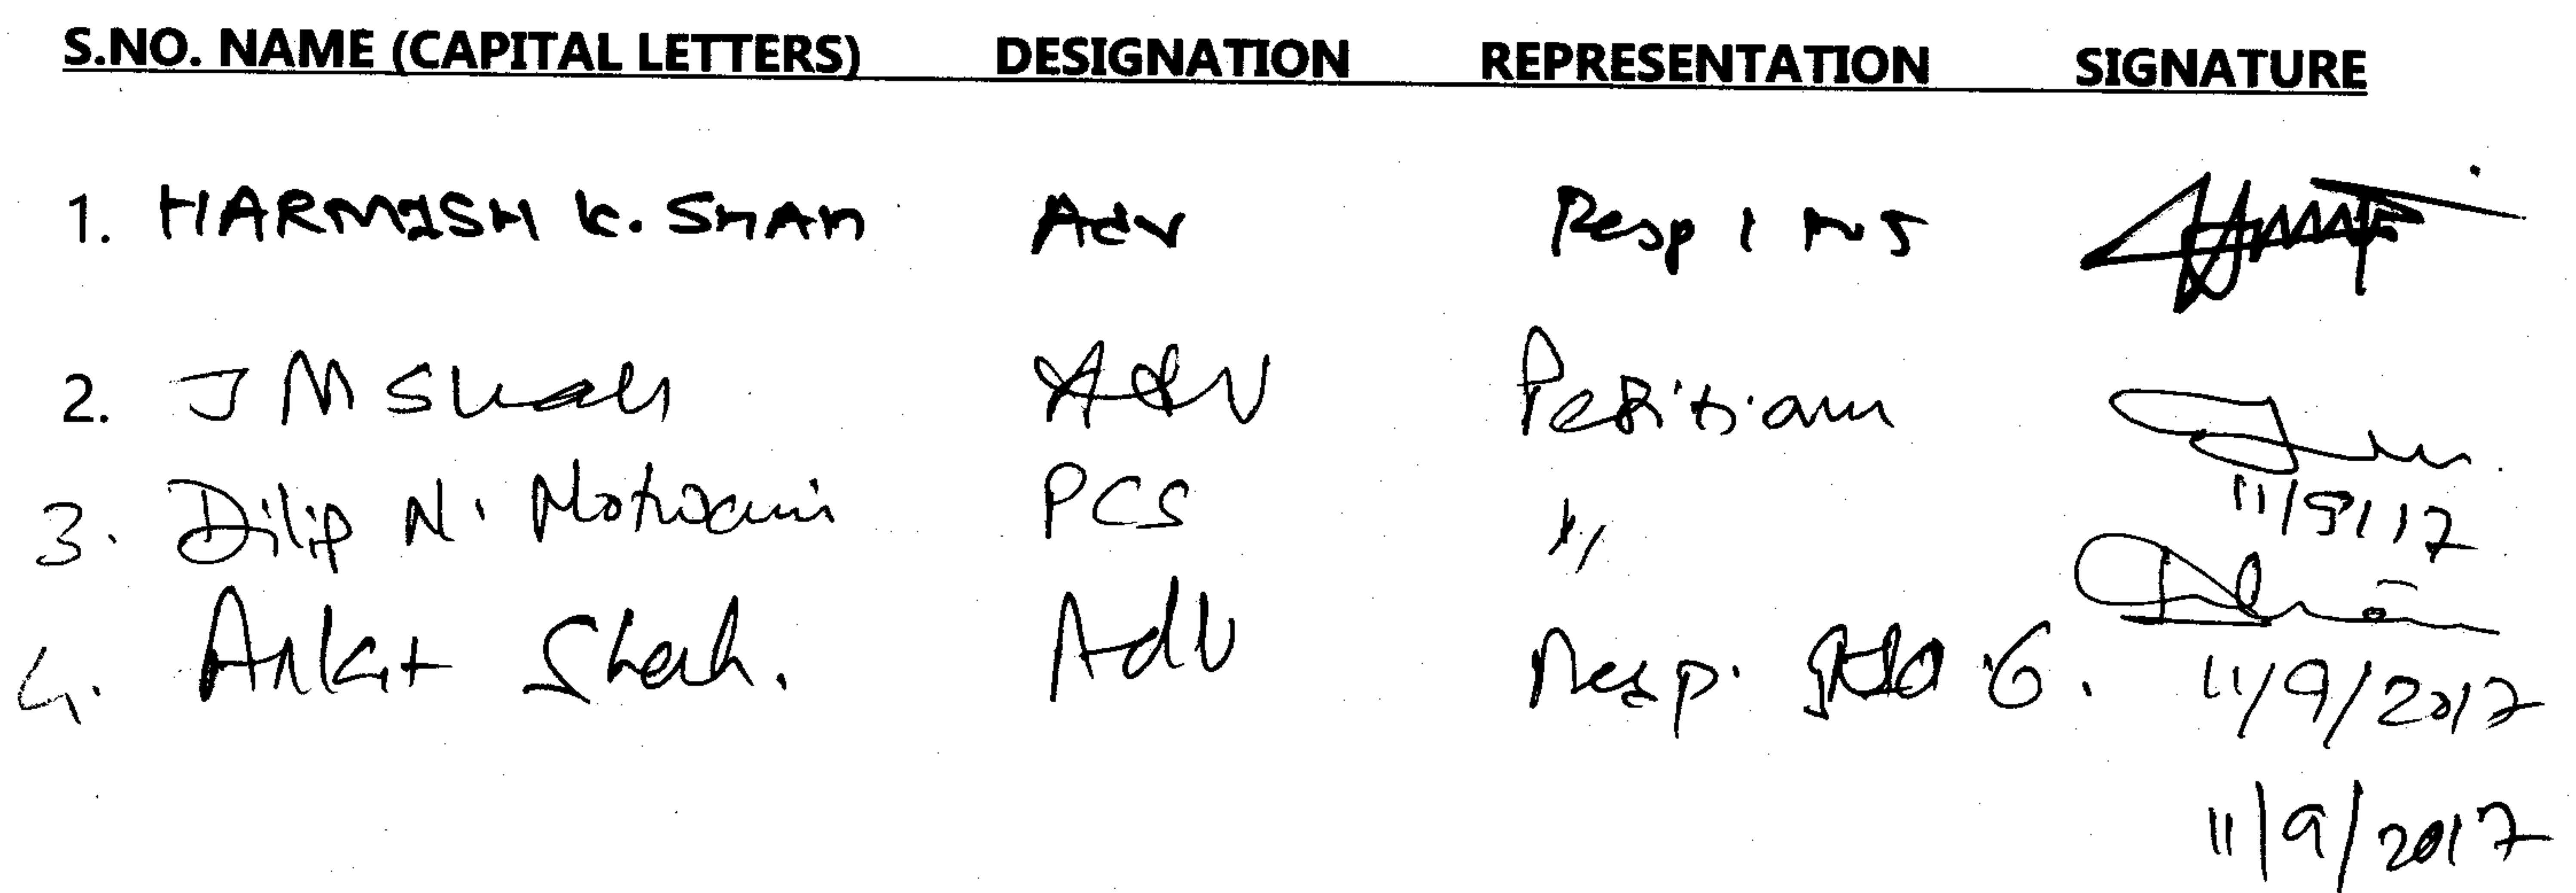 S.NO. NAME (CAPITAL LETTERS) DESIGNATION REPRESENTATION SIGNATURE
1. HARMISH K. SHAH Adv Resp 1 to 5
2. J M Shah Adv Petition
3. Dilip N. Motwani PCS 〃
11/9/17
4. Ankit Shah. Adv Resp. 6.
11/9/2017
11/9/2017